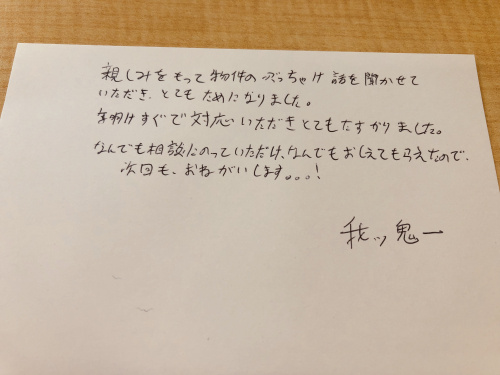 親しみをもって物件のぶっちゃけ話を聞かせて
いただき、とてもためになりました。
年明けすぐで対応いただきとてもたすかりました。
なんでも相談にのっていただけ、なんでもおしえてもらえたので、
次回も、おねがいします。。。!
我ッ鬼一